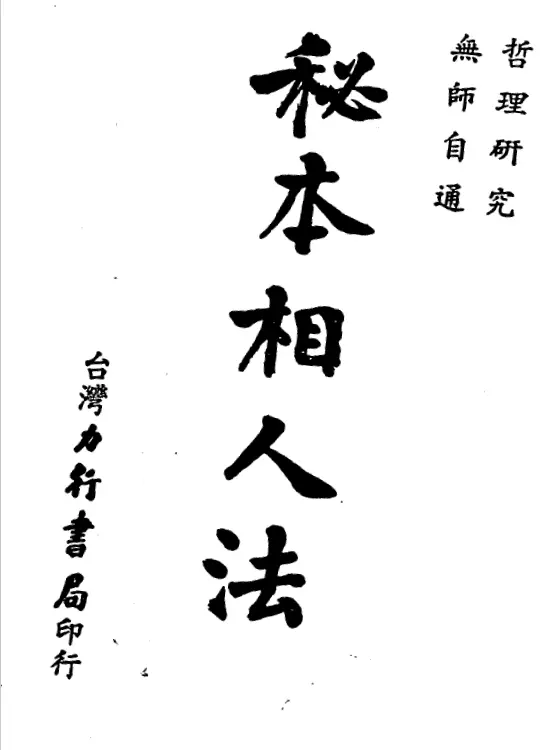 哲理研究
無師自通
秘本相人法
台灣力行書局印行